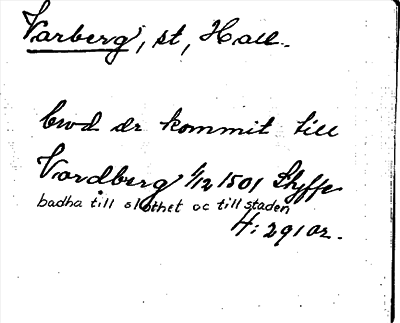 Varberg, st, Hall.
bud är kommit till
Vardberg 1/12 1501 Styffe
badha till slothet oc till staden
4: 291 02.